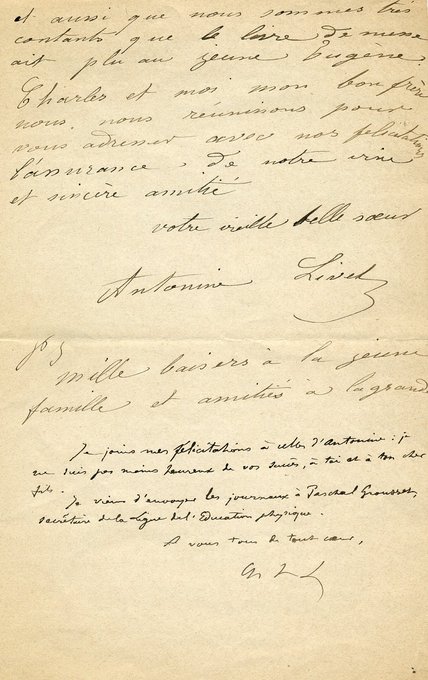 et aussi que nous sommes très
contants que le livre de messe
ait plu au jeune Eugène,
Charles et moi mon bon frère
nous nous réunissons pour
vous adresser avec nos félicitations
l'assurance, de notre vive
et sincère amitié
votre vieille belle sœur
Antonine Livet
mille baisers à la jeune
famille et amitiés à la grande
Je joins mes félicitations à celles d'Antonine: je
ne suis pas moins heureux de vos succès, à toi et à ton cher
fils.
Je viens d'envoyer les journaux à Paschal Grousset,
secrétaire de la Ligue de l'Education physique.
A vous tous de tout cœur,